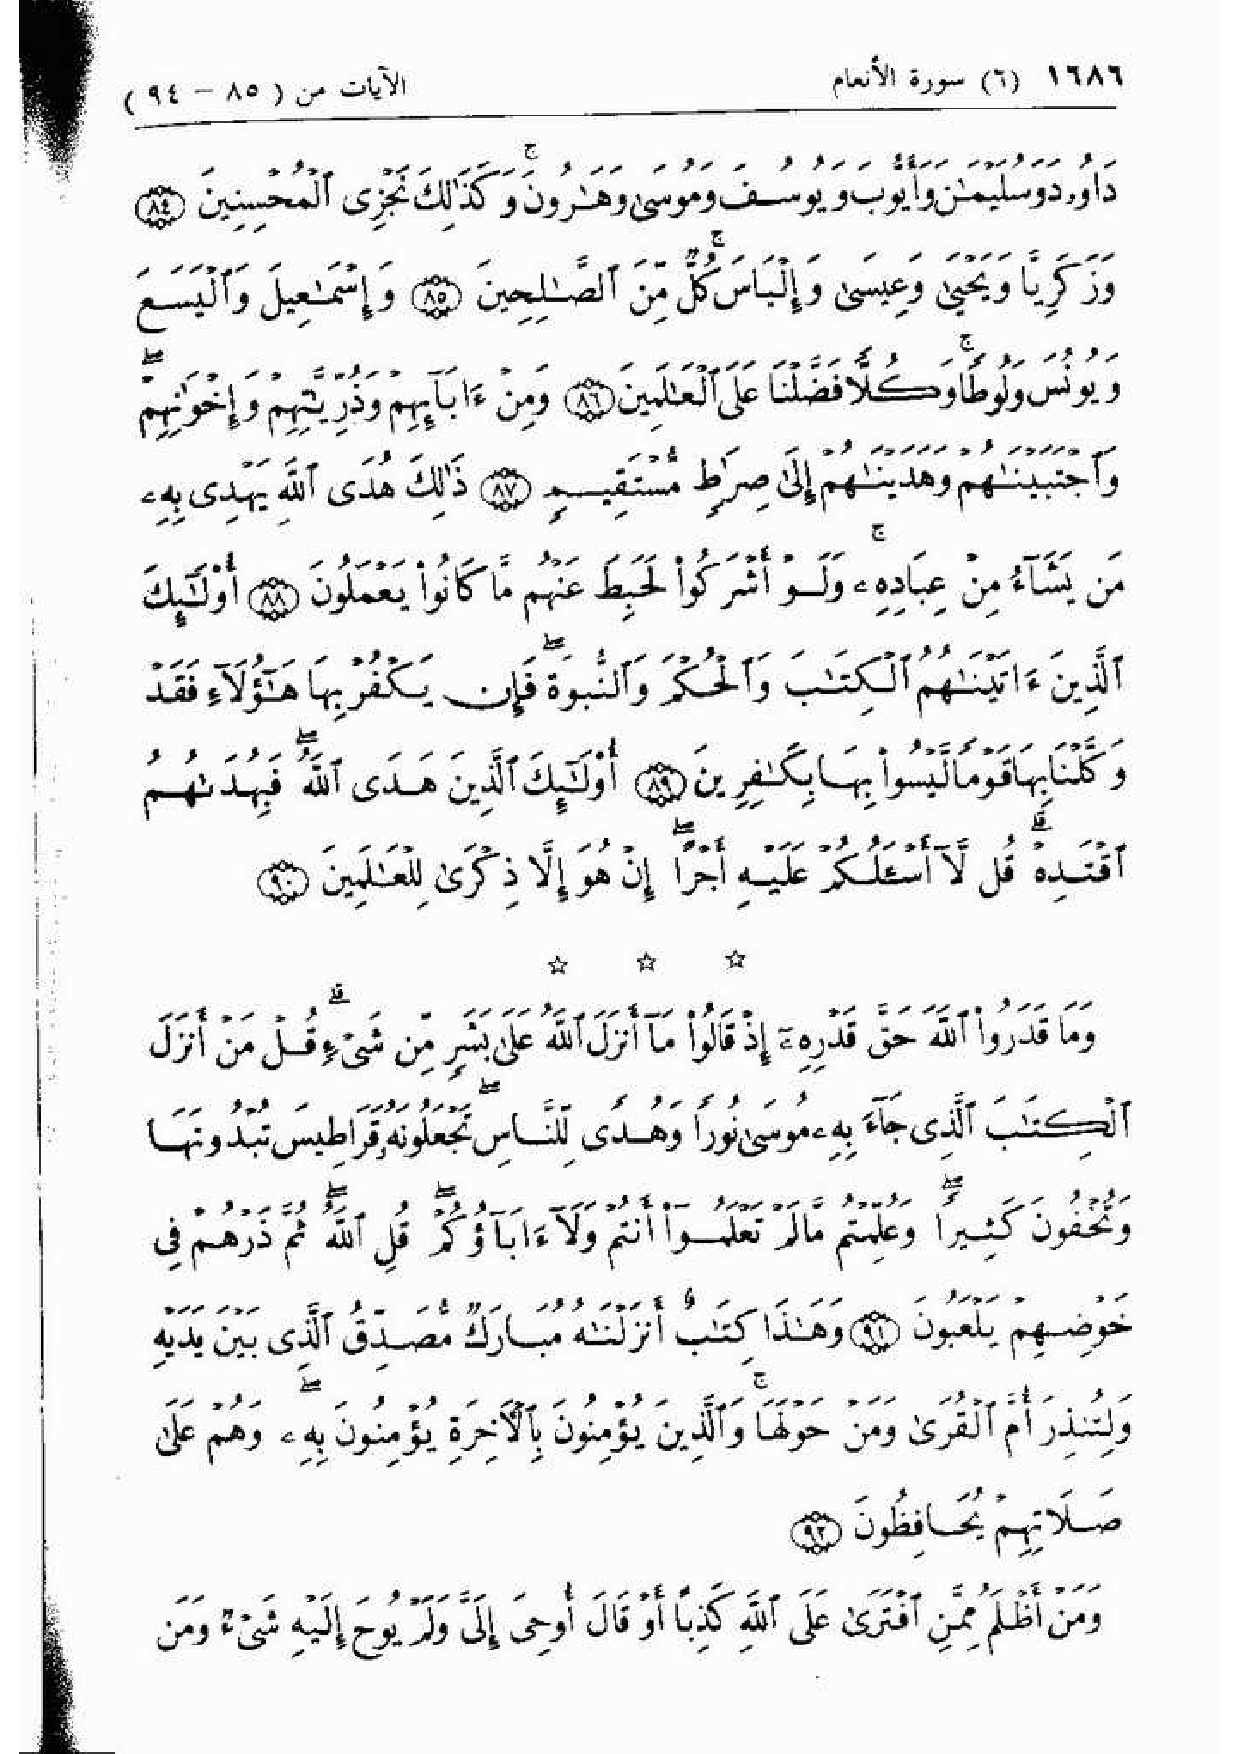 ١٦٨٦ (٦) سورة الأنعام الآيات من ( ٨٥ – ٩٤ )
دَاوُۥدَ وَسُلَيْمَٰنَ وَأَيُّوبَ وَيُوسُفَ وَمُوسَىٰ وَهَٰرُونَ ۚ وَكَذَٰلِكَ نَجْزِى ٱلْمُحْسِنِينَ ﴿٨٤﴾
وَزَكَرِيَّا وَيَحْيَىٰ وَعِيسَىٰ وَإِلْيَاسَ ۚ كُلٌّ مِّنَ ٱلصَّٰلِحِينَ ﴿٨٥﴾ وَإِسْمَٰعِيلَ وَٱلْيَسَعَ
وَيُونُسَ وَلُوطًا ۚ وَكُلًّا فَضَّلْنَا عَلَى ٱلْعَٰلَمِينَ ﴿٨٦﴾ وَمِنْ ءَابَآئِهِمْ وَذُرِّيَّٰتِهِمْ وَإِخْوَٰنِهِمْ ۖ
وَٱجْتَبَيْنَٰهُمْ وَهَدَيْنَٰهُمْ إِلَىٰ صِرَٰطٍ مُّسْتَقِيمٍ ﴿٨٧﴾ ذَٰلِكَ هُدَى ٱللَّهِ يَهْدِى بِهِۦ
مَن يَشَآءُ مِنْ عِبَادِهِۦ ۚ وَلَوْ أَشْرَكُوا۟ لَحَبِطَ عَنْهُم مَّا كَانُوا۟ يَعْمَلُونَ ﴿٨٨﴾ أُو۟لَٰٓئِكَ
ٱلَّذِينَ ءَاتَيْنَٰهُمُ ٱلْكِتَٰبَ وَٱلْحُكْمَ وَٱلنُّبُوَّةَ ۖ فَإِن يَكْفُرْ بِهَا هَٰٓؤُلَآءِ فَقَدْ
وَكَّلْنَا بِهَا قَوْمًا لَّيْسُوا۟ بِهَا بِكَٰفِرِينَ ﴿٨٩﴾ أُو۟لَٰٓئِكَ ٱلَّذِينَ هَدَى ٱللَّهُ ۖ فَبِهُدَىٰهُمُ
ٱقْتَدِهْ ۗ قُل لَّآ أَسْـَٔلُكُمْ عَلَيْهِ أَجْرًا ۖ إِنْ هُوَ إِلَّا ذِكْرَىٰ لِلْعَٰلَمِينَ ﴿٩٠﴾
☆ ☆ ☆
وَمَا قَدَرُوا۟ ٱللَّهَ حَقَّ قَدْرِهِۦٓ إِذْ قَالُوا۟ مَآ أَنزَلَ ٱللَّهُ عَلَىٰ بَشَرٍ مِّن شَىْءٍ ۗ قُلْ مَنْ أَنزَلَ
ٱلْكِتَٰبَ ٱلَّذِى جَآءَ بِهِۦ مُوسَىٰ نُورًا وَهُدًى لِّلنَّاسِ ۖ تَجْعَلُونَهُۥ قَرَاطِيسَ تُبْدُونَهَا
وَتُخْفُونَ كَثِيرًا ۖ وَعُلِّمْتُم مَّا لَمْ تَعْلَمُوٓا۟ أَنتُمْ وَلَآ ءَابَآؤُكُمْ ۖ قُلِ ٱللَّهُ ۖ ثُمَّ ذَرْهُمْ فِى
خَوْضِهِمْ يَلْعَبُونَ ﴿٩١﴾ وَهَٰذَا كِتَٰبٌ أَنزَلْنَٰهُ مُبَارَكٌ مُّصَدِّقُ ٱلَّذِى بَيْنَ يَدَيْهِ
وَلِتُنذِرَ أُمَّ ٱلْقُرَىٰ وَمَنْ حَوْلَهَا ۚ وَٱلَّذِينَ يُؤْمِنُونَ بِٱلْءَاخِرَةِ يُؤْمِنُونَ بِهِۦ ۖ وَهُمْ عَلَىٰ
صَلَاتِهِمْ يُحَافِظُونَ ﴿٩٢﴾
وَمَنْ أَظْلَمُ مِمَّنِ ٱفْتَرَىٰ عَلَى ٱللَّهِ كَذِبًا أَوْ قَالَ أُوحِىَ إِلَىَّ وَلَمْ يُوحَ إِلَيْهِ شَىْءٌ وَمَن